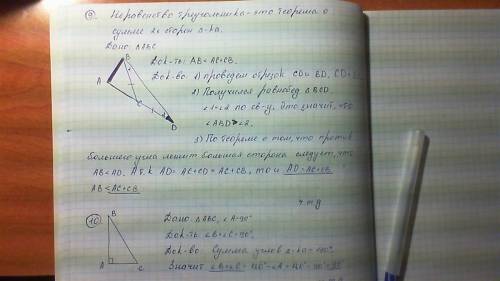 ⑨ Неравенство треугольника - это теорема о
сумме 2х сторон Δ-ка.
Дано: ΔABC
Док-ть: AB < AC+CB.
Док-во: 1) проведём отрезок CD и BD, CD=
2) Получился равнобед ΔBCD
∠1=∠2 по св-у, Это значит, что
∠ABD > ∠2.
3) По теореме о том, что против
большего угла лежит большая сторона следует, что
AB<AD. А т.к AD=AC+CD=AC+CB, то и AD=AC+CB
AB<AC+CB
ч.т.д
B
A
C
D
⑩
Дано: ΔABC, ∠A=90°
Док-ть: ∠B+∠C=90°.
Док-во: Сумма углов Δ-ка=180°.
Значит ∠B+∠C=180°-∠A=180°-90°=90°
B
A
C